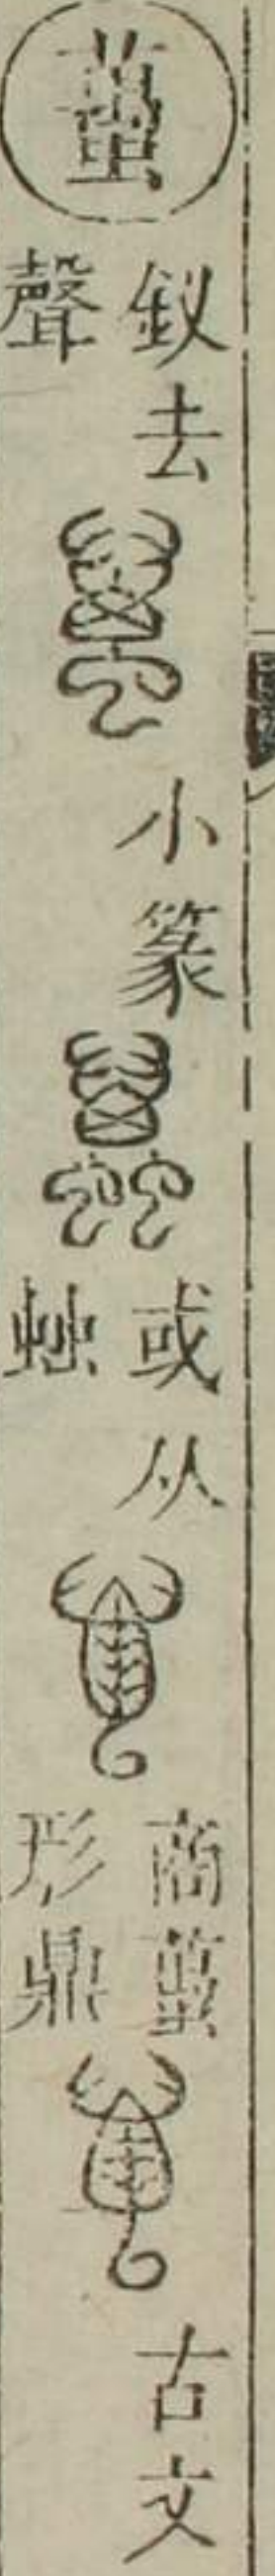 蠆釵去聲小篆或从䖵商蠆形鼎古文